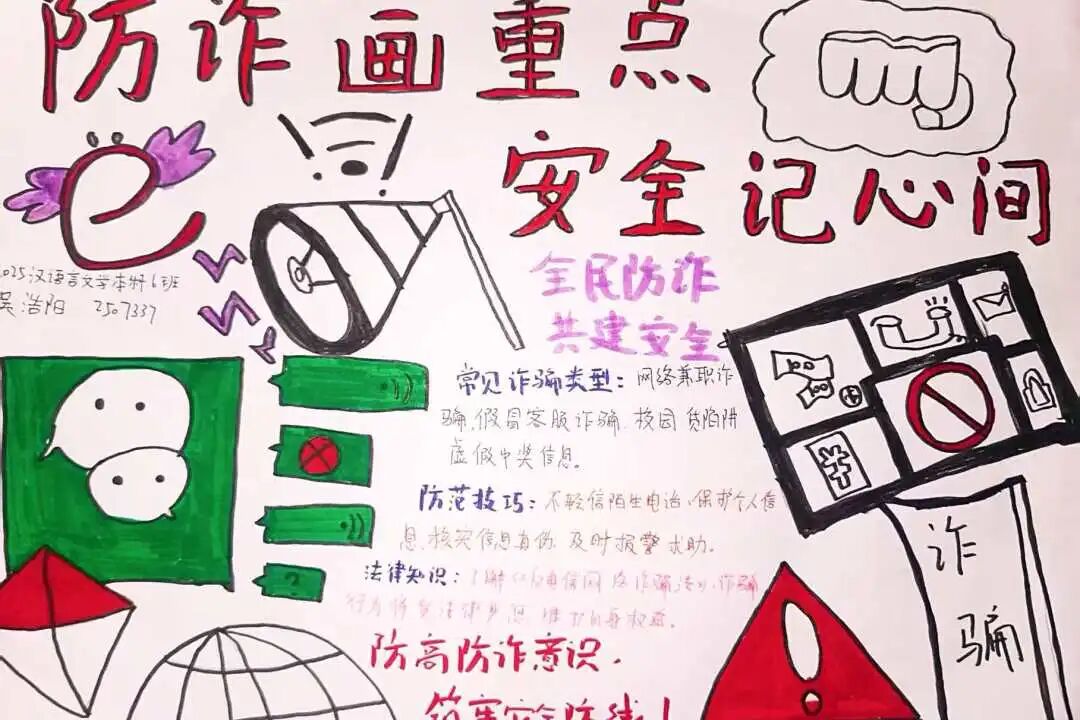 防诈画重点
安全记心间
2025汉语言文学本科6班
吴浩阳 2507337
全民防诈
共建安全
常见诈骗类型：网络兼职诈
骗、假冒客服诈骗、校园贷陷阱
虚假中奖信息。
防范技巧：不轻信陌生电话、保护个人信
息、核实信息真伪、及时报警求助。
法律知识：电信网 诈骗法》，诈骗
行为将 法律 维护自身权益。
防高防诈意识，
筑牢安全防线！
诈
骗